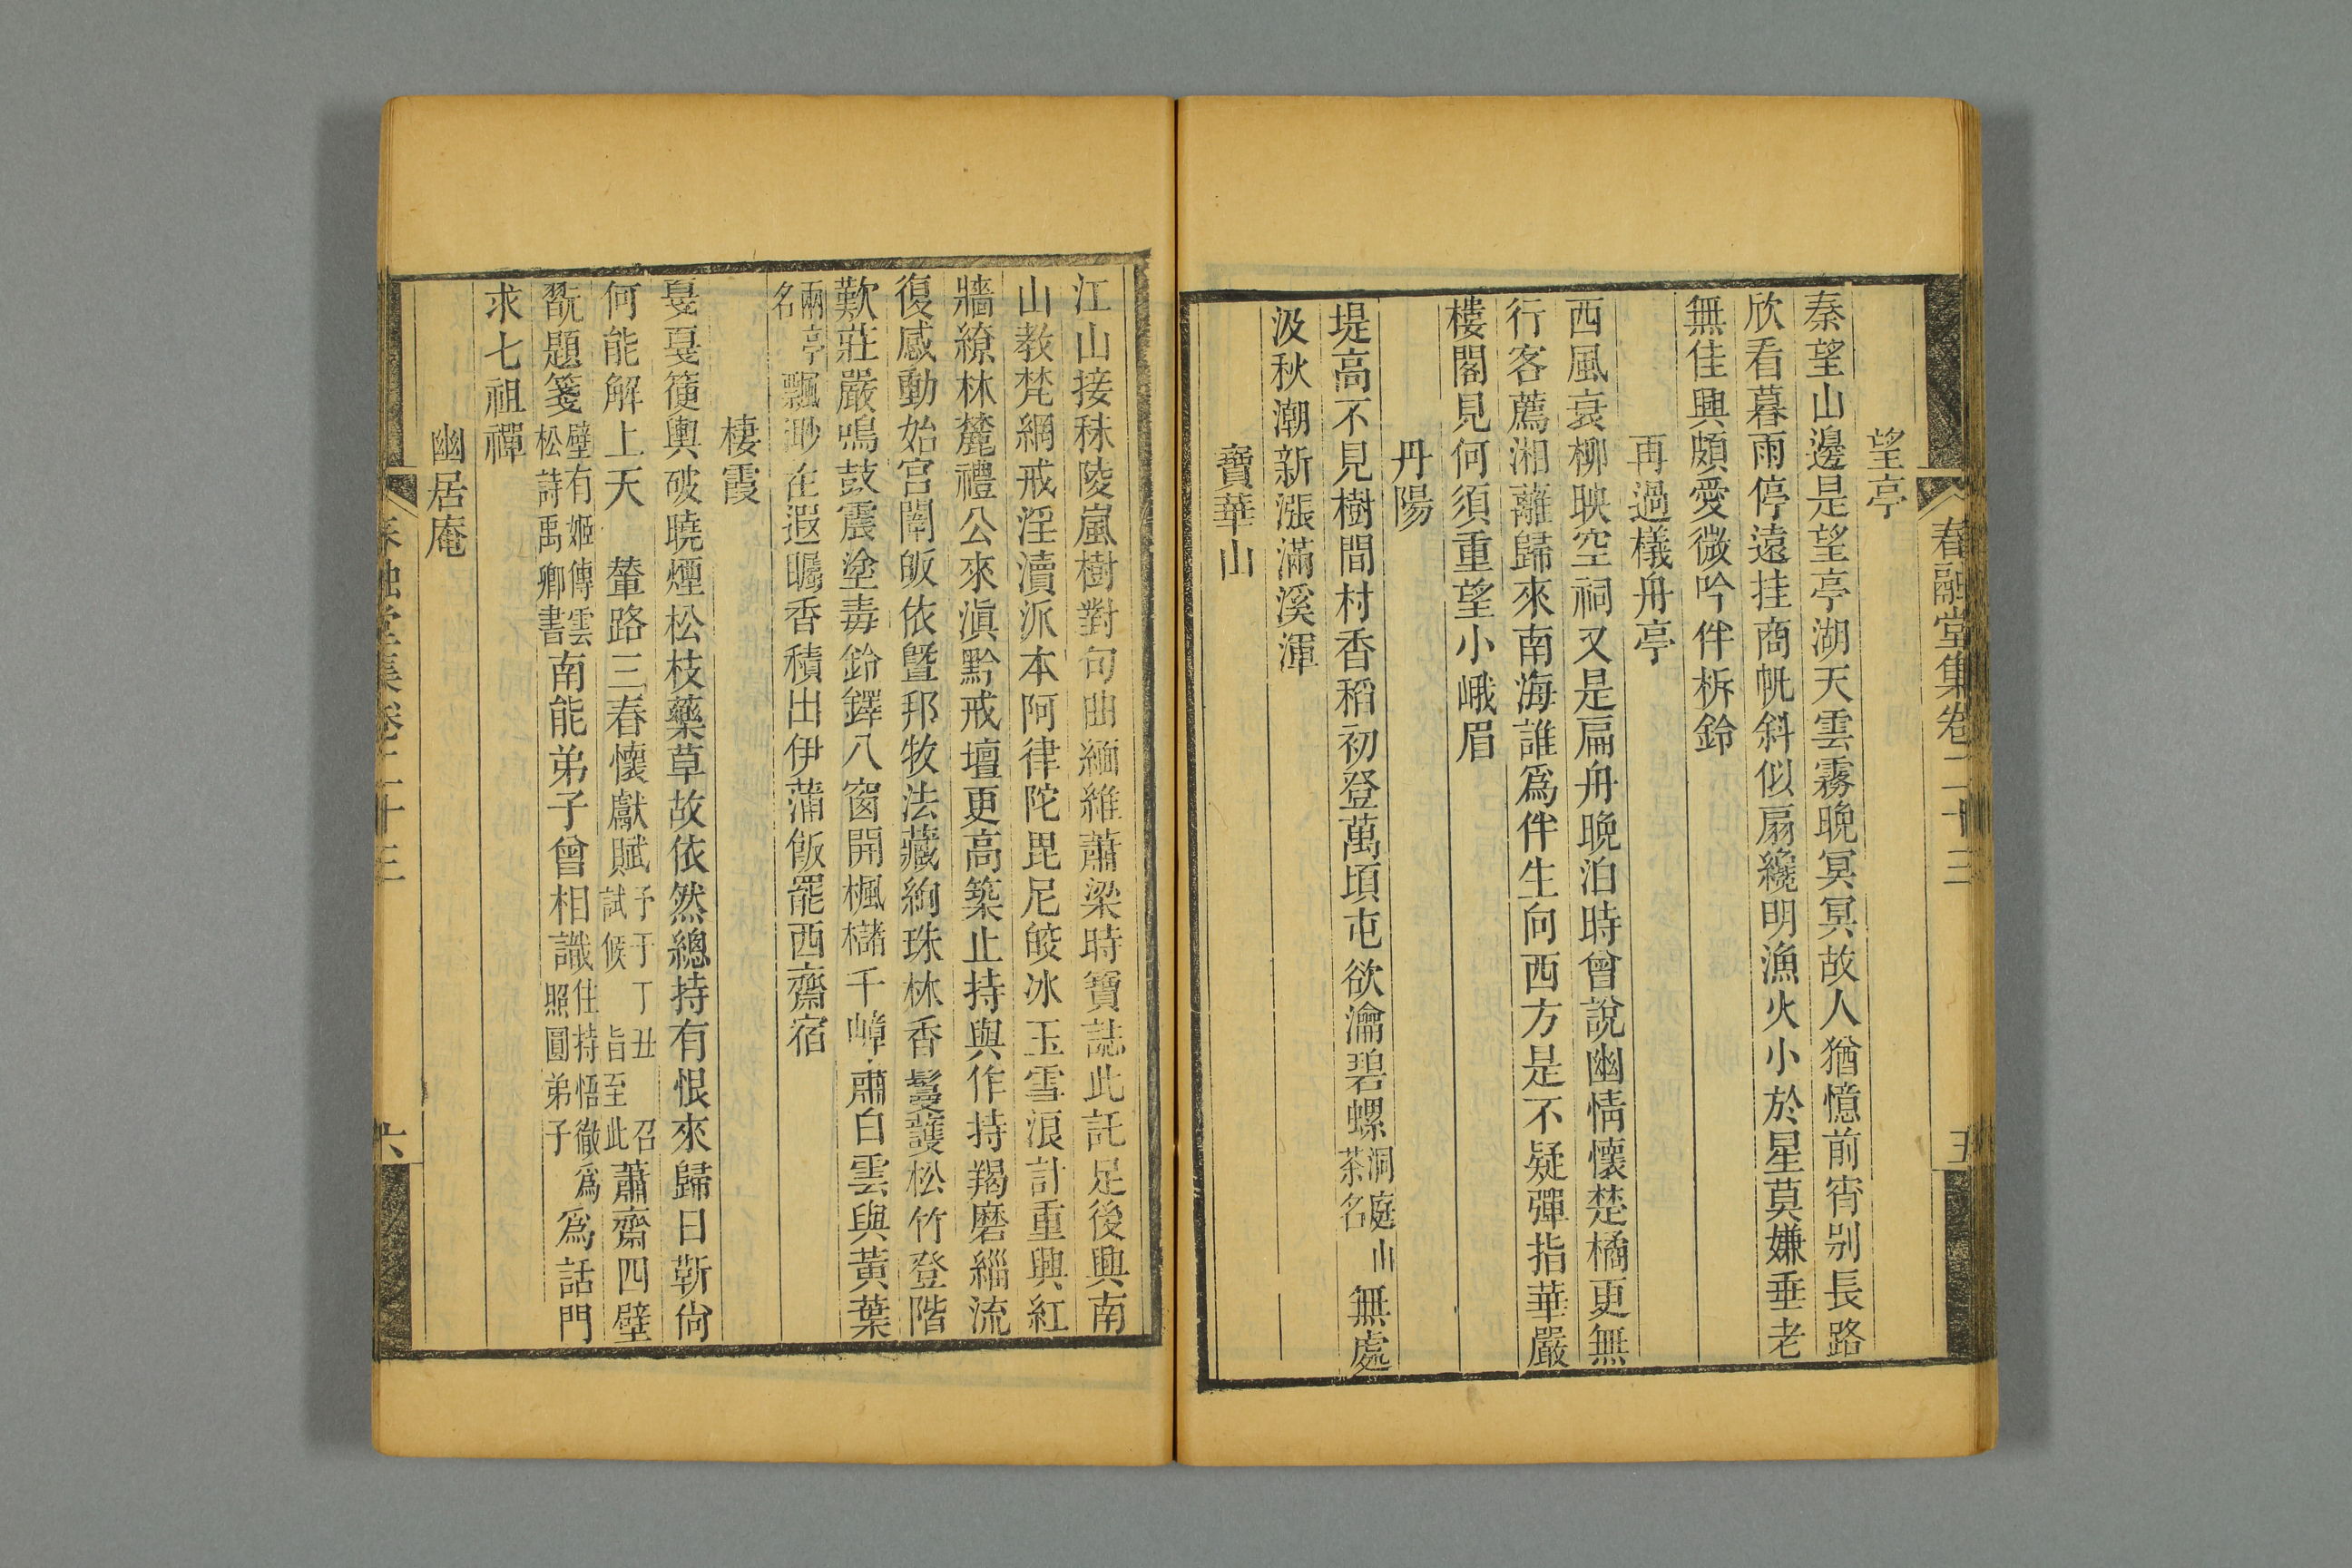 春融堂集卷二十三
五
望亭
秦望山邊是望亭湖天雲霧晚冥冥故人猶憶前宵别長路
欣看暮雨停遠挂商帆斜似扇纔明漁火小於星莫嫌垂老
無佳興頗愛微吟伴柝鈴
再過檥舟亭
西風衰柳映空祠又是扁舟晚泊時曾說幽情懷楚橘更無
行客薦湘蘺歸來南海誰爲伴生向西方是不疑彈指華嚴
樓閣見何須重望小峨眉
丹陽
堤高不見樹間村香稻初登萬頃屯欲瀹碧螺洞庭山茶名無處
汲秋潮新漲滿溪渾
寶華山
江山接秣陵嵐樹對句曲緬維蕭梁時寶誌此託足後興南
山教梵網戒淫瀆派本阿律陀毘尼皎冰玉雪浪計重興紅
牆繚林麓禮公來滇黔戒壇更高築止持與作持羯磨緇流
復感動始宮闈皈依曁邦牧法藏絢珠林香鬘䕶松竹登階
歎莊嚴鳴鼓震塗毒鈴鐸八窗開楓櫧千嶂肅白雲與黃葉
兩亭名飄渺在遐矚香積出伊蒲飯罷西齋宿
棲霞
戛戛籧輿破曉煙松枝藥草故依然總持有恨來歸日靳尙
何能解上天　輦路三春懷獻賦予于丁丑召試候旨至此蕭齋四壁
翫題箋壁有姬傳雲松詩禹卿書南能弟子曾相識住持悟徹爲照圓弟子爲話門
求七祖禪
幽居庵
春融堂集卷二十三
六